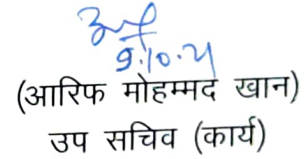 9.10.21
(आरिफ मोहम्मद खान)
उप सचिव (कार्य)